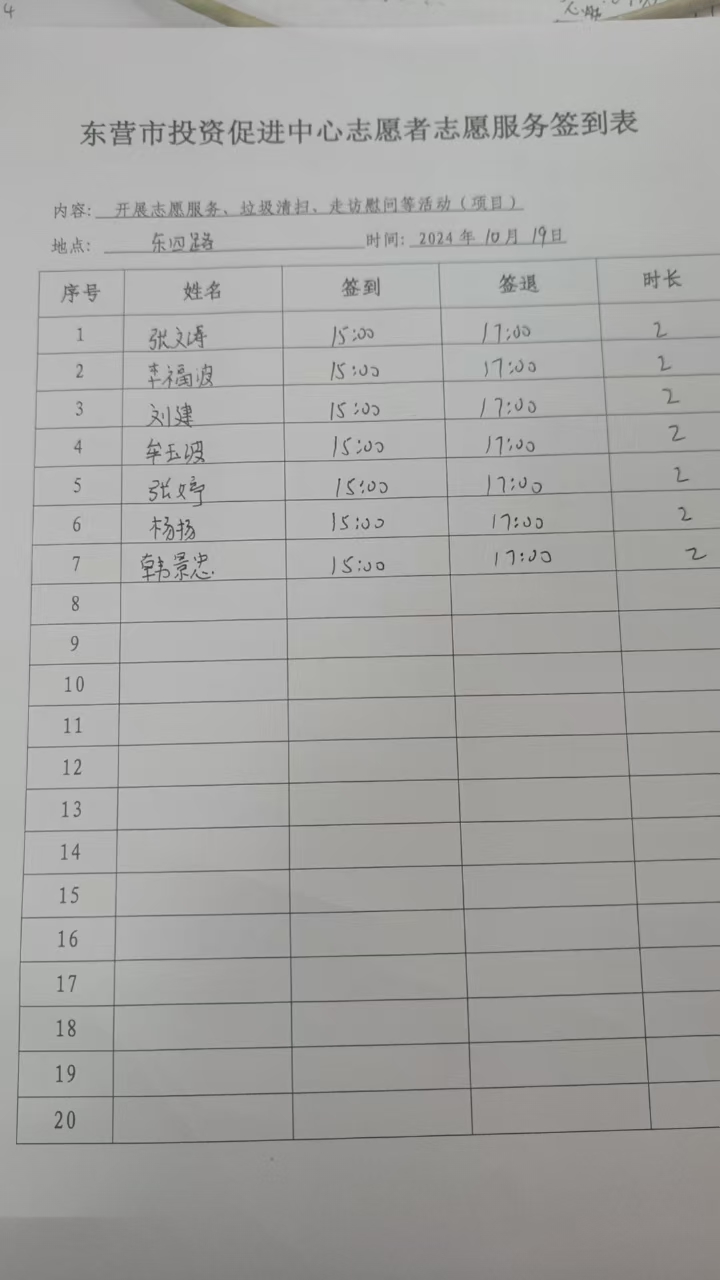 4
东营市投资促进中心志愿者志愿服务签到表
内容: 开展志愿服务、垃圾清扫、走访慰问等活动（项目）
地点: 东四路 时间: 2024 年 10 月 19 日
序号 姓名 签到 签退 时长
1 张文涛 15:00 17:00 2
2 李福波 15:00 17:00 2
3 刘建 15:00 17:00 2
4 牟玉波 15:00 17:00 2
5 张婷 15:00 17:00 2
6 杨扬 15:00 17:00 2
7 韩景忠 15:00 17:00 2
8
9
10
11
12
13
14
15
16
17
18
19
20